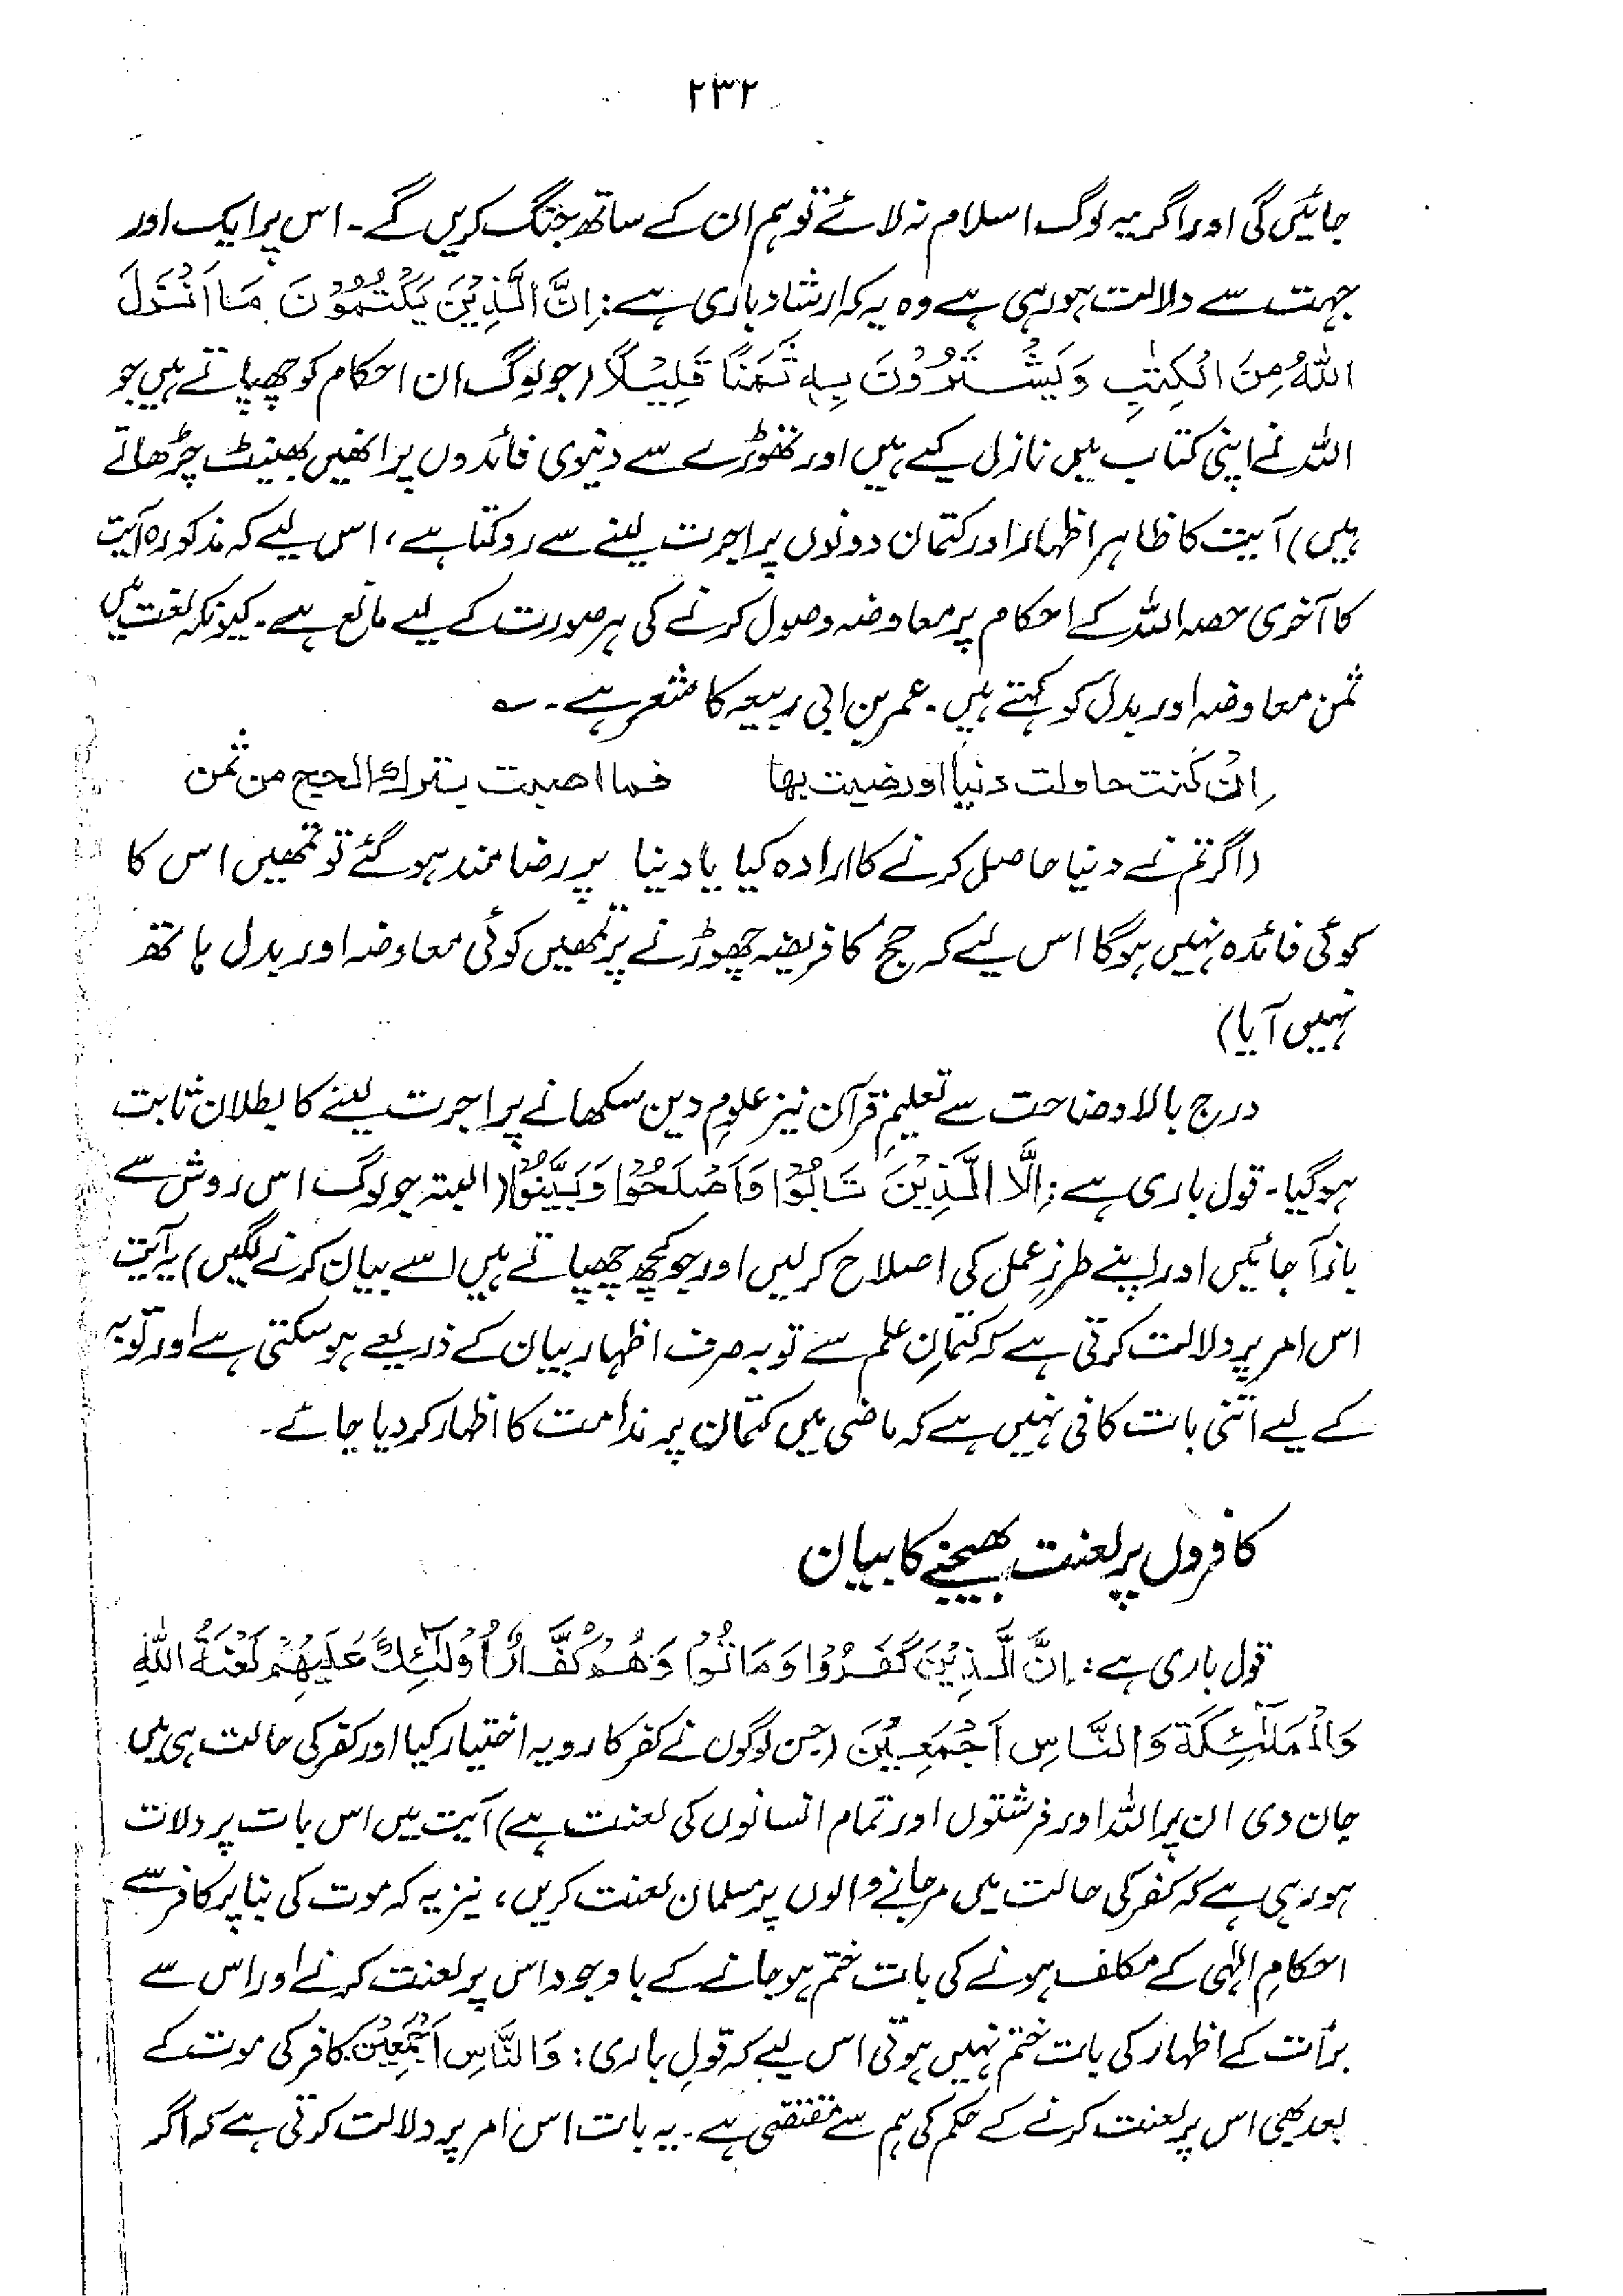 ۲۳۲
جائیں گی اور اگر یہ لوگ اسلام نہ لائے تو ہم ان کے ساتھ جنگ کریں گے۔ اس پر ایک اور
جہت سے دلالت ہو رہی ہے وہ یہ کہ ارشاد باری ہے: اِنَّ الَّذِیْنَ یَکْتُمُوْنَ مَا اَنْزَلَ
اللّٰہُ مِنَ الْکِتٰبِ وَیَشْتَرُوْنَ بِہٖ ثَمَنًا قَلِیْلًا (جو لوگ ان احکام کو چھپاتے ہیں جو
اللہ نے اپنی کتاب میں نازل کیے ہیں اور تھوڑے سے دنیوی فائدوں پر انھیں بھینٹ چڑھاتے
ہیں) آیت کا ظاہر اظہار اور کتمان دونوں پر اجرت لینے سے روکتا ہے، اس لیے کہ مذکورہ آیت
کا آخری حصہ اللہ کے احکام پر معاوضہ وصول کرنے کی ہر صورت کے لیے مانع ہے۔ کیونکہ لغت میں
ثمن معاوضہ اور بدل کو کہتے ہیں۔ عمر بن ابی ربیعہ کا شعر ہے۔ ؎
اِنْ کنت حاولت دنیا اورضیت بھا فما اصبت بترک الحج من ثمن
(اگر تم نے دنیا حاصل کرنے کا ارادہ کیا یا دنیا پر رضامند ہو گئے تو تمھیں اس کا
کوئی فائدہ نہیں ہوگا اس لیے کہ حج کا فریضہ چھوڑنے پر تمھیں کوئی معاوضہ اور بدل ہاتھ
نہیں آیا)
درج بالا وضاحت سے تعلیمِ قرآن نیز علومِ دین سکھانے پر اجرت لینے کا بطلان ثابت
ہوگیا۔ قول باری ہے: اِلَّا الَّذِیْنَ تَابُوْا وَاَصْلَحُوْا وَبَیَّنُوْا (البتہ جو لوگ اس روش سے
باز آ جائیں اور اپنے طرزِ عمل کی اصلاح کر لیں اور جو کچھ چھپاتے ہیں اسے بیان کرنے لگیں) یہ آیت
اس امر پر دلالت کرتی ہے کہ کتمانِ علم سے توبہ صرف اظہار بیان کے ذریعے ہو سکتی ہے اور توبہ
کے لیے اتنی بات کافی نہیں ہے کہ ماضی میں کتمان پر ندامت کا اظہار کر دیا جائے۔
کافروں پر لعنت بھیجنے کا بیان
قول باری ہے: اِنَّ الَّذِیْنَ کَفَرُوْا وَمَاتُوْا وَھُمْ کُفَّارٌ اُوْلٰٓئِکَ عَلَیْھِمْ لَعْنَۃُ اللّٰہِ
وَالْمَلٰٓئِکَۃِ وَالنَّاسِ اَجْمَعِیْنَ (جن لوگوں نے کفر کا رویہ اختیار کیا اور کفر کی حالت ہی میں
جان دی ان پر اللہ اور فرشتوں اور تمام انسانوں کی لعنت ہے) آیت میں اس بات پر دلالت
ہو رہی ہے کہ کفر کی حالت میں مر جانے والوں پر مسلمان لعنت کریں، نیز یہ کہ موت کی بنا پر کافر سے
احکامِ الٰہی کے مکلف ہونے کی بات ختم ہو جانے کے باوجود اس پر لعنت کرنے اور اس سے
برأت کے اظہار کی بات ختم نہیں ہوتی اس لیے کہ قولِ باری: وَالنَّاسِ اَجْمَعِیْنَ کافر کی موت کے
بعد بھی اس پر لعنت کرنے کے حکم کی ہم سے مقتضی ہے۔ یہ بات اس امر پر دلالت کرتی ہے کہ اگر